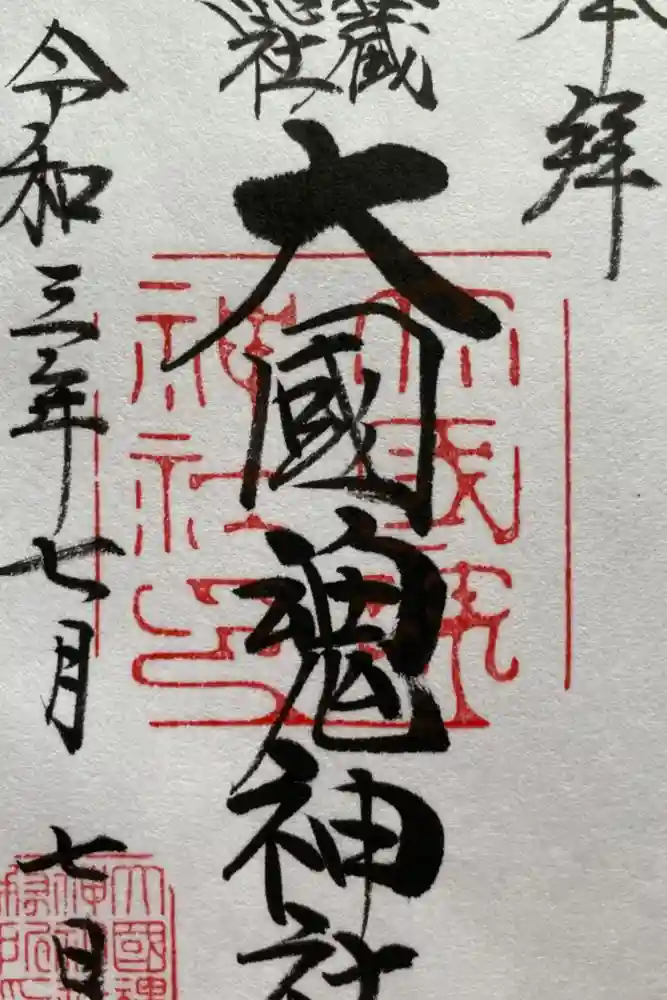 奉拝
武蔵
総社
大國魂神社
令和三年七月七日
大國魂
神社印